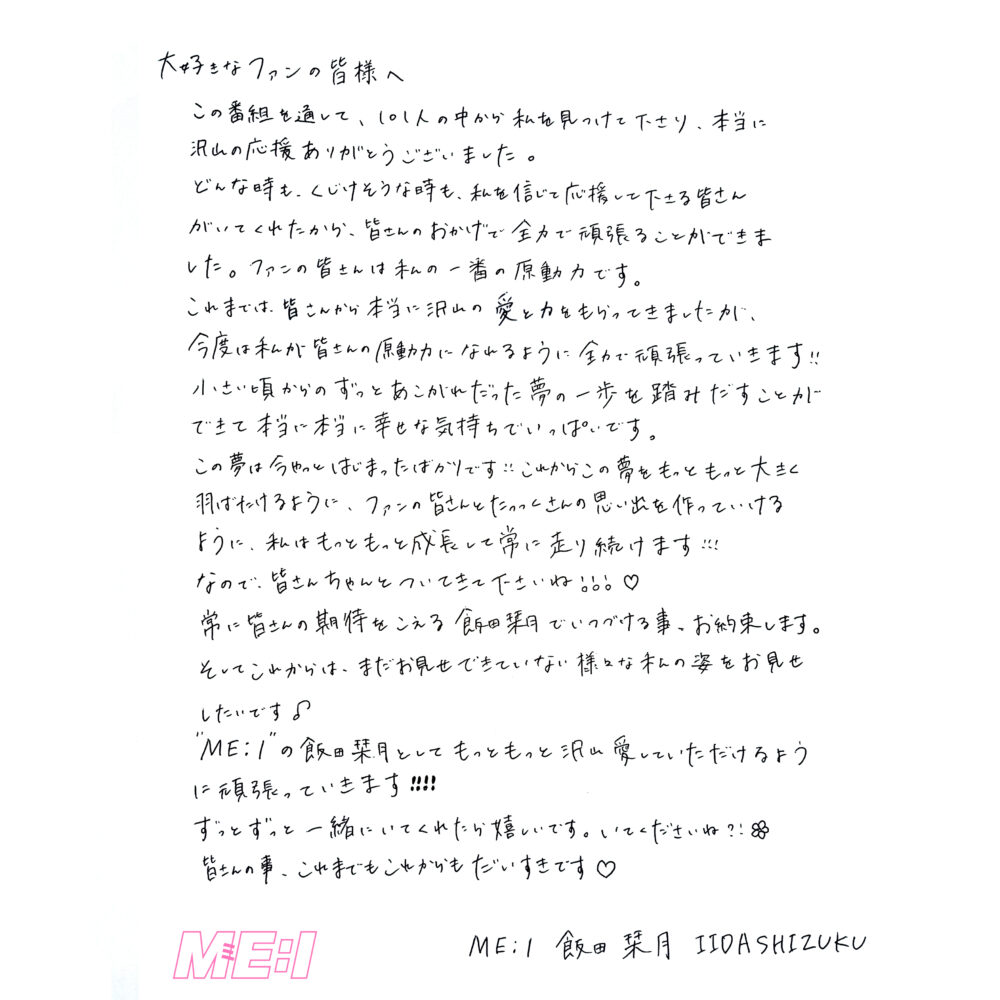 大好きなファンの皆様へ
この番組を通して、101人の中から私を見つけて下さり、本当に
沢山の応援ありがとうございました。
どんな時も、くじけそうな時も、私を信じて応援して下さる皆さん
がいてくれたから、皆さんのおかげで全力で頑張ることができま
した。ファンの皆さんは私の一番の原動力です。
これまでは、皆さんから本当に沢山の愛と力をもらってきましたが、
今度は私が皆さんの原動力になれるように全力で頑張っていきます!!
小さい頃からのずっとあこがれだった夢の一歩を踏みだすことが
できて本当に本当に幸せな気持ちでいっぱいです。
この夢は今やっとはじまったばかりです!!これからこの夢をもっともっと大きく
羽ばたけるように、ファンの皆さんとたっっくさんの思い出を作っていける
ように、私はもっともっと成長して常に走り続けます!!!
なので、皆さんちゃんとついてきて下さいね!!!♡
常に皆さんの期待をこえる飯田栞月でいつづける事、お約束します。
そしてこれからは、まだお見せできていない様々な私の姿をお見せ
したいです♪
"ME:I"の飯田栞月としてもっともっと沢山愛していただけるよう
に頑張っていきます!!!!
ずっとずっと一緒にいてくれたら嬉しいです。いてくださいね?!
皆さんの事、これまでもこれからもだいすきです♡
ME:I 飯田 栞月 IIDASHIZUKU
ME:I